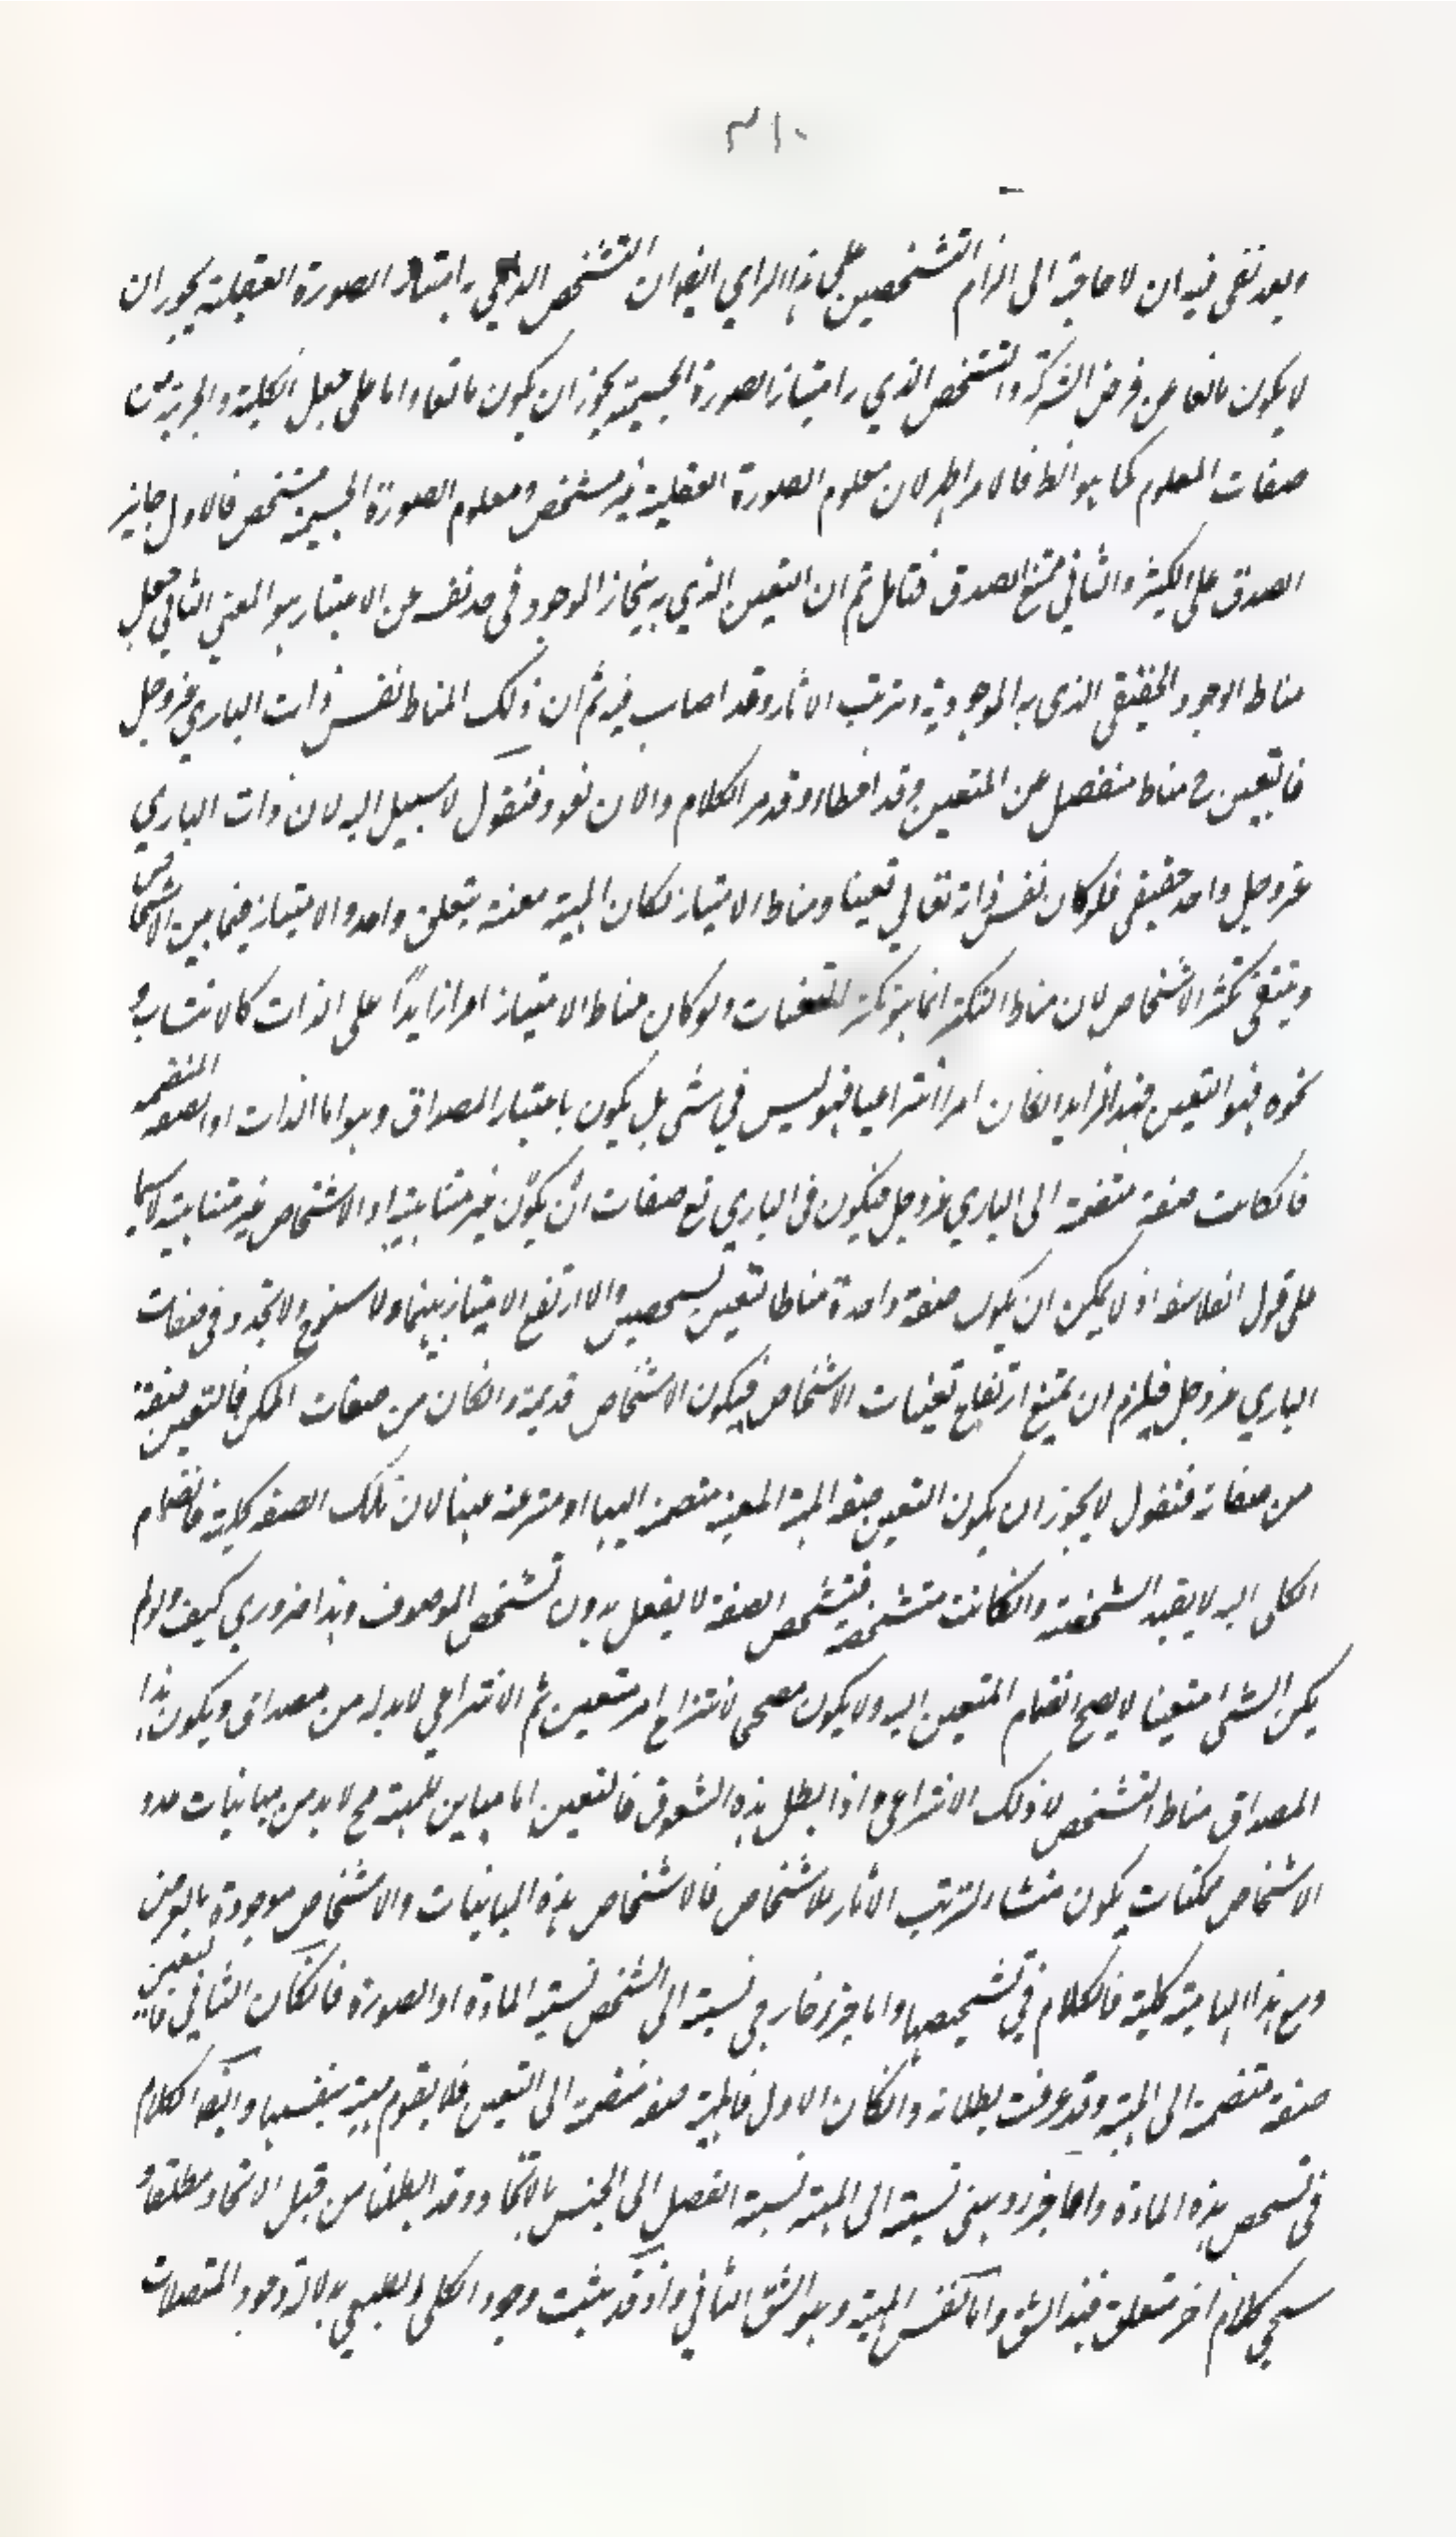 ٣١٠
وبعد بقى فيه ان لا حاجة الى الزام التشخصين على هذا الراي ايضا ان التشخص الذي به امتياز الصورة العقلية يجوز ان
لا يكون مانعا عن فرض الشركة والتشخص الذي به امتياز الصورة الجسمية يجوز ان يكون مانعا واما على جعل الكلية والجزئية من
صفات المعلوم كما هو الظ فالامر اظهر لان معلوم الصورة العقلية غير مشخص ومعلوم الصورة الجسمية مشخص فالاول جايز
الصدق على الكثير والثاني ممتنع الصدق فتامل ثم ان التعين الذي به ينحاز الموجود في حد نفسه عن الامتياز هو المعنى الثاني جعل
مناط الوجود الحقيقي الذي به الموجودية وترتب الاثار وقد اصاب فيه ثم ان ذلك المناط نفس ذات الباري عز وجل
فالتعين ح مناط منفصل عن المتعين وقد اخطاء وقد مر الكلام والان نعود فنقول لا سبيل اليه لان ذات الباري
عز وجل واحد حقيقي فلو كان نفس ذاته تعالى تعينا ومناط الامتياز لكان المهية معينة بتعلق واحد والامتياز فيما بين الاشخاص
وينتفى تكثر الاشخاص لان مناط التكثر انما هو تكثر التعينات ولو كان مناط الامتياز امرا زايدًا على الذات كالانتساب و
نحوه فهو التعين فهذا الزايد انكان امرا انتزاعيا فهو ليس في شئ بل يكون باعتبار المصداق وهو اما الذات او الصفة المنضمة
فانكانت صفة منضمة الى الباري عز وجل فيكون في الباري تع صفات ان يكون غير متناهية اذ الاشخاص غير متناهية لا سيما
على قول الفلاسفة اذ لا يمكن ان يكون صفة واحدة مناطا لتعين شخصين والا ارتفع الامتياز بينهما ولا سنوح ولا تجدد في صفات
الباري عز وجل فيلزم ان يمتنع ارتفاع تعينات الاشخاص فيكون الاشخاص قديمة وانكان من صفات الممكن فالتعين صفة
من صفاته فنقول لا يجوز ان يكون التعين صفة المهية المعينة منضمة اليها او منتزعة عنها لان تلك الصفة كلية فانضمام
الكلى اليه لا يفيد الشخصية وانكانت متشخصة فتشخص الصفة لا يفعل بدون تشخص الموصوف وهذا ضروري كيف ولو لم
يكن الشئ متعينا لا يصح انضمام المتعين اليه ولا يكون مصححا لانتزاع امر متعين ثم الانتزاعي لا بد له من مصداق ويكون هذا
المصداق مناط التشخص لا ذلك الانتزاعي واذا بطل هذه الشقوق فالتعين اما مباين للمهية فح لا بد من مباينات عدد
الاشخاص ممكنات يكون منشاء لترتب الاثار للاشخاص فالاشخاص هذه المباينات والاشخاص موجودة بالعرض
ومع هذا المباينة كلية فالكلام في تشخيصها واما جزء خارجي نسبته الى الشخص نسبة المادة او الصورة فانكان الثاني فالتعين
صفة منضمة الى المهية وقد عرفت بطلانه وانكان الاول فالمهية صفة منضمة الى التعين فلا يقوم مهية بنفسها وايضا الكلام
في تشخص هذه المادة واما جزء ذهني نسبته الى المهية نسبة الفصل الى الجنس بالاتحاد وقد ابطلنا من قبل الاتحاد مطلقا و
سيجئ كلام اخر متعلق بهذا الشق واما كنفس المهية وهو الشق الثاني واذ قد يثبت وجود الكلى الطبيعي بدلالة وجود المتصلات